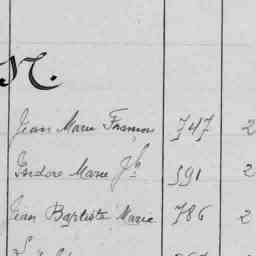 N.
Jean Marie François 747 2
Isidore Marie Jh 591 2
Jean Baptiste Marie 786 2